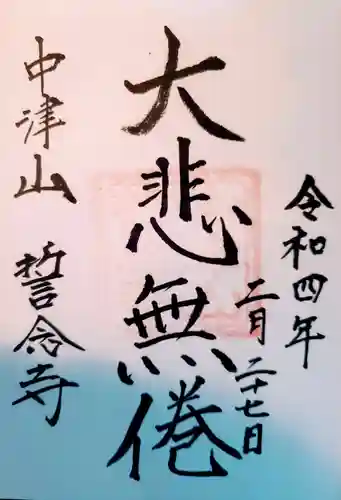 令和四年
二月二十七日
大悲無倦
中津山 誓念寺